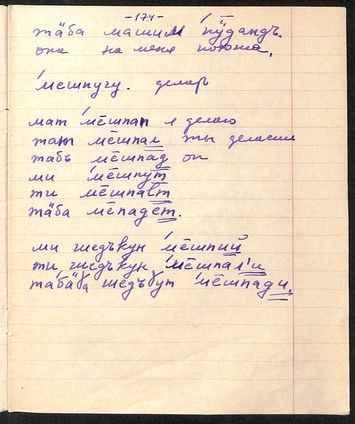 -174-
тäба машим ́пӱдандъ.
она на меня похожа.
́мешпугу. делать
мат ́мёшпап я делаю
тат мёшпал ты делаешь
табъ мёшпад он
ми ́мёшпут
ти мёшпалт
тäба мёпадёт.
ми шедъкун ́мёшпий
ти шедъкун ́мёшпал'и
шедъ ́мёшпади.